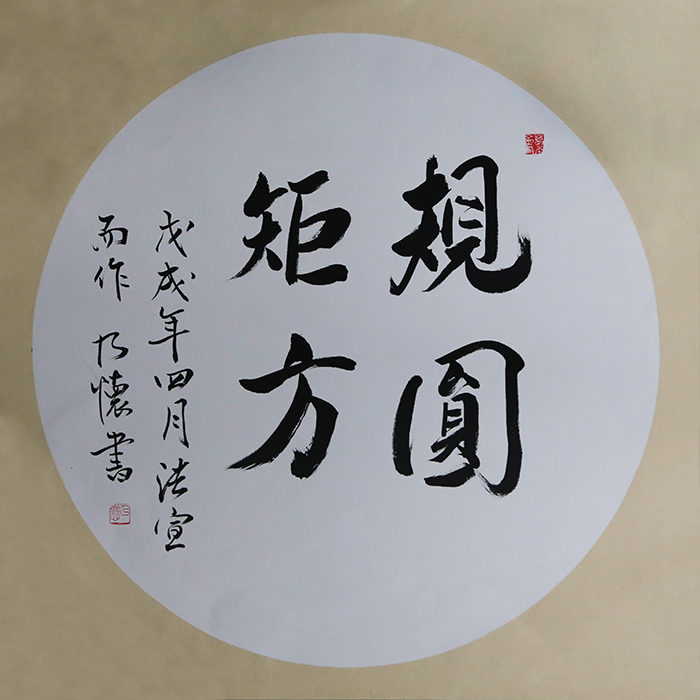 規圓
矩方
戊戌年四月法宣
而作 乃懷書